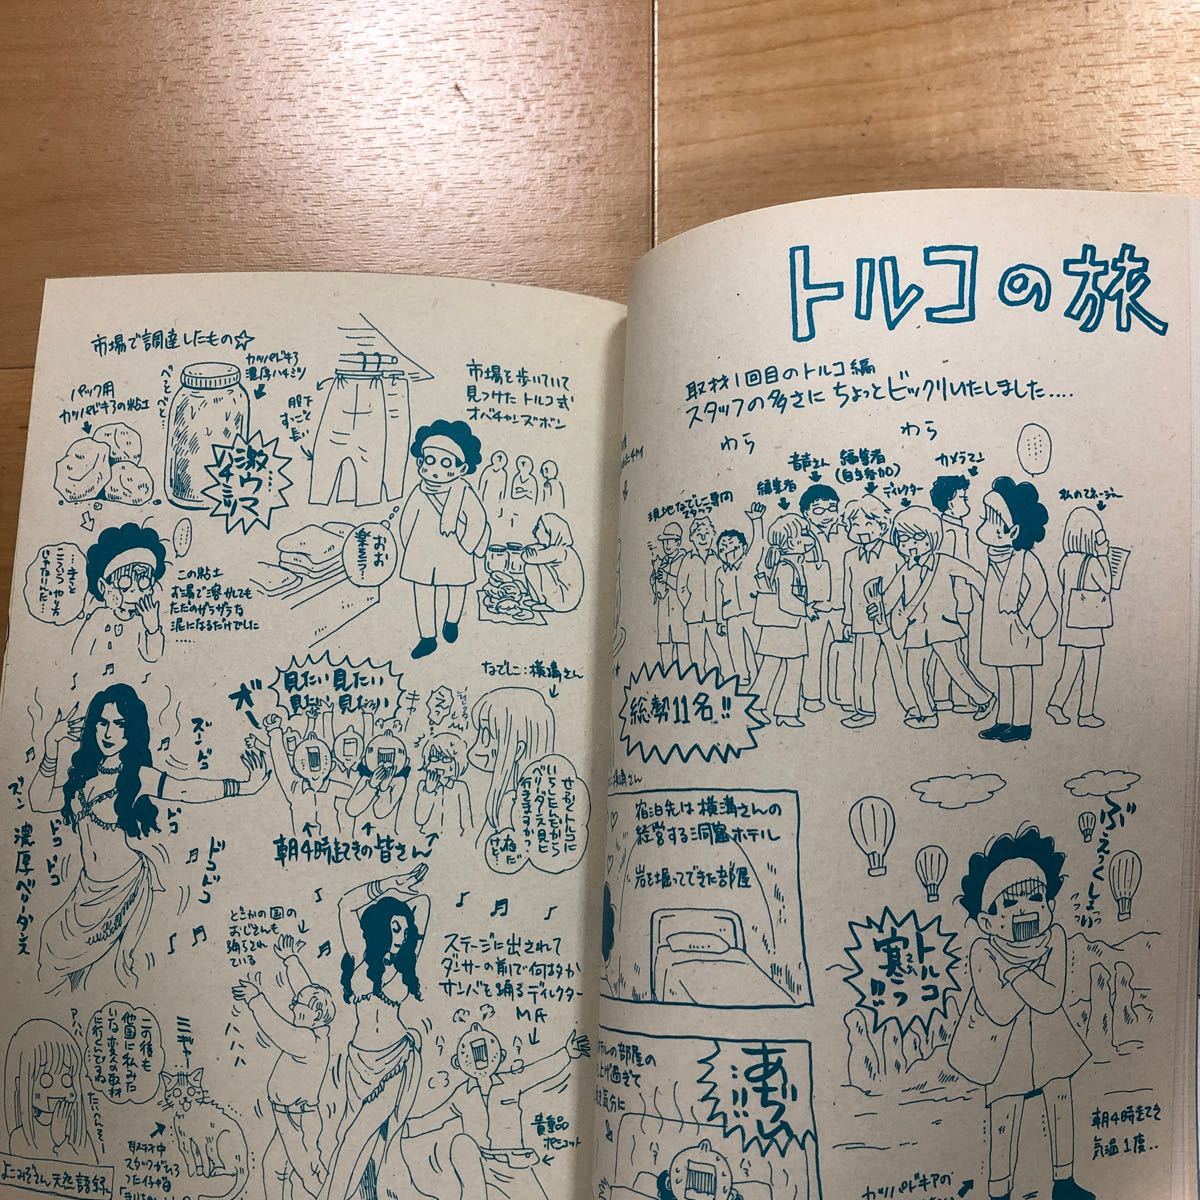 トルコの旅
取材1回目のトルコ編
スタッフの多さにちょっとビックリいたしました‥‥
わら
わら
現地なでしこ専門
スタッフ
編集者
音声さん
編集者
(自費参加)
ディレクター
カメラマン
私のマネージャー
総勢11名!!
宿泊先は横溝さんの
経営する洞窟ホテル
岩を掘ってできた部屋
ぶえっくしょいっっっ
トルコ
寒っ!!
さぶ
朝4時起きで
気温1度‥
カッパドキアの
テルの部屋の
上げ過ぎて
気分に
あぢぃ
‥‥!!
市場で調達したもの☆
パック用
カッパドキアの粘土
べっとべと
カッパドキア
濃厚ハチミツ
激ウマ
ハチミツ
股下
すっごく
長い
市場を歩いていて
見つけたトルコ式
オバチャンズボン
おお
楽そう…
…きっと
こういうやし方
じゃないんだ…
この粘土
お湯で溶かしても
ただのザラザラな
泥になるだけでした…
なでしこ:横溝さん
見たい見たい
見たい見たい
ボー
せっかくトルコに
いらしたんだから
ベリーダンス見に
行きますか?
夜だ
けど…
朝4時起きの皆さん
ズンドコ
ズン
ドコ
ドコ
ドコ
ドコ
濃厚ベリーダンス
どこかの国の
おじさんも
踊らされ
ている
ステージに出されて
ダンサーの前で何故か
サンバを踊るディレクター
M氏
貴重品
ポシェット
ハハハハ
この後も
他国に私みた
いな変人の取材
に行くんですね
たいへんそー
アハハ
ミギャー
取材中
スタッフがひろ
った仔猫
よこみぞさん天然語録